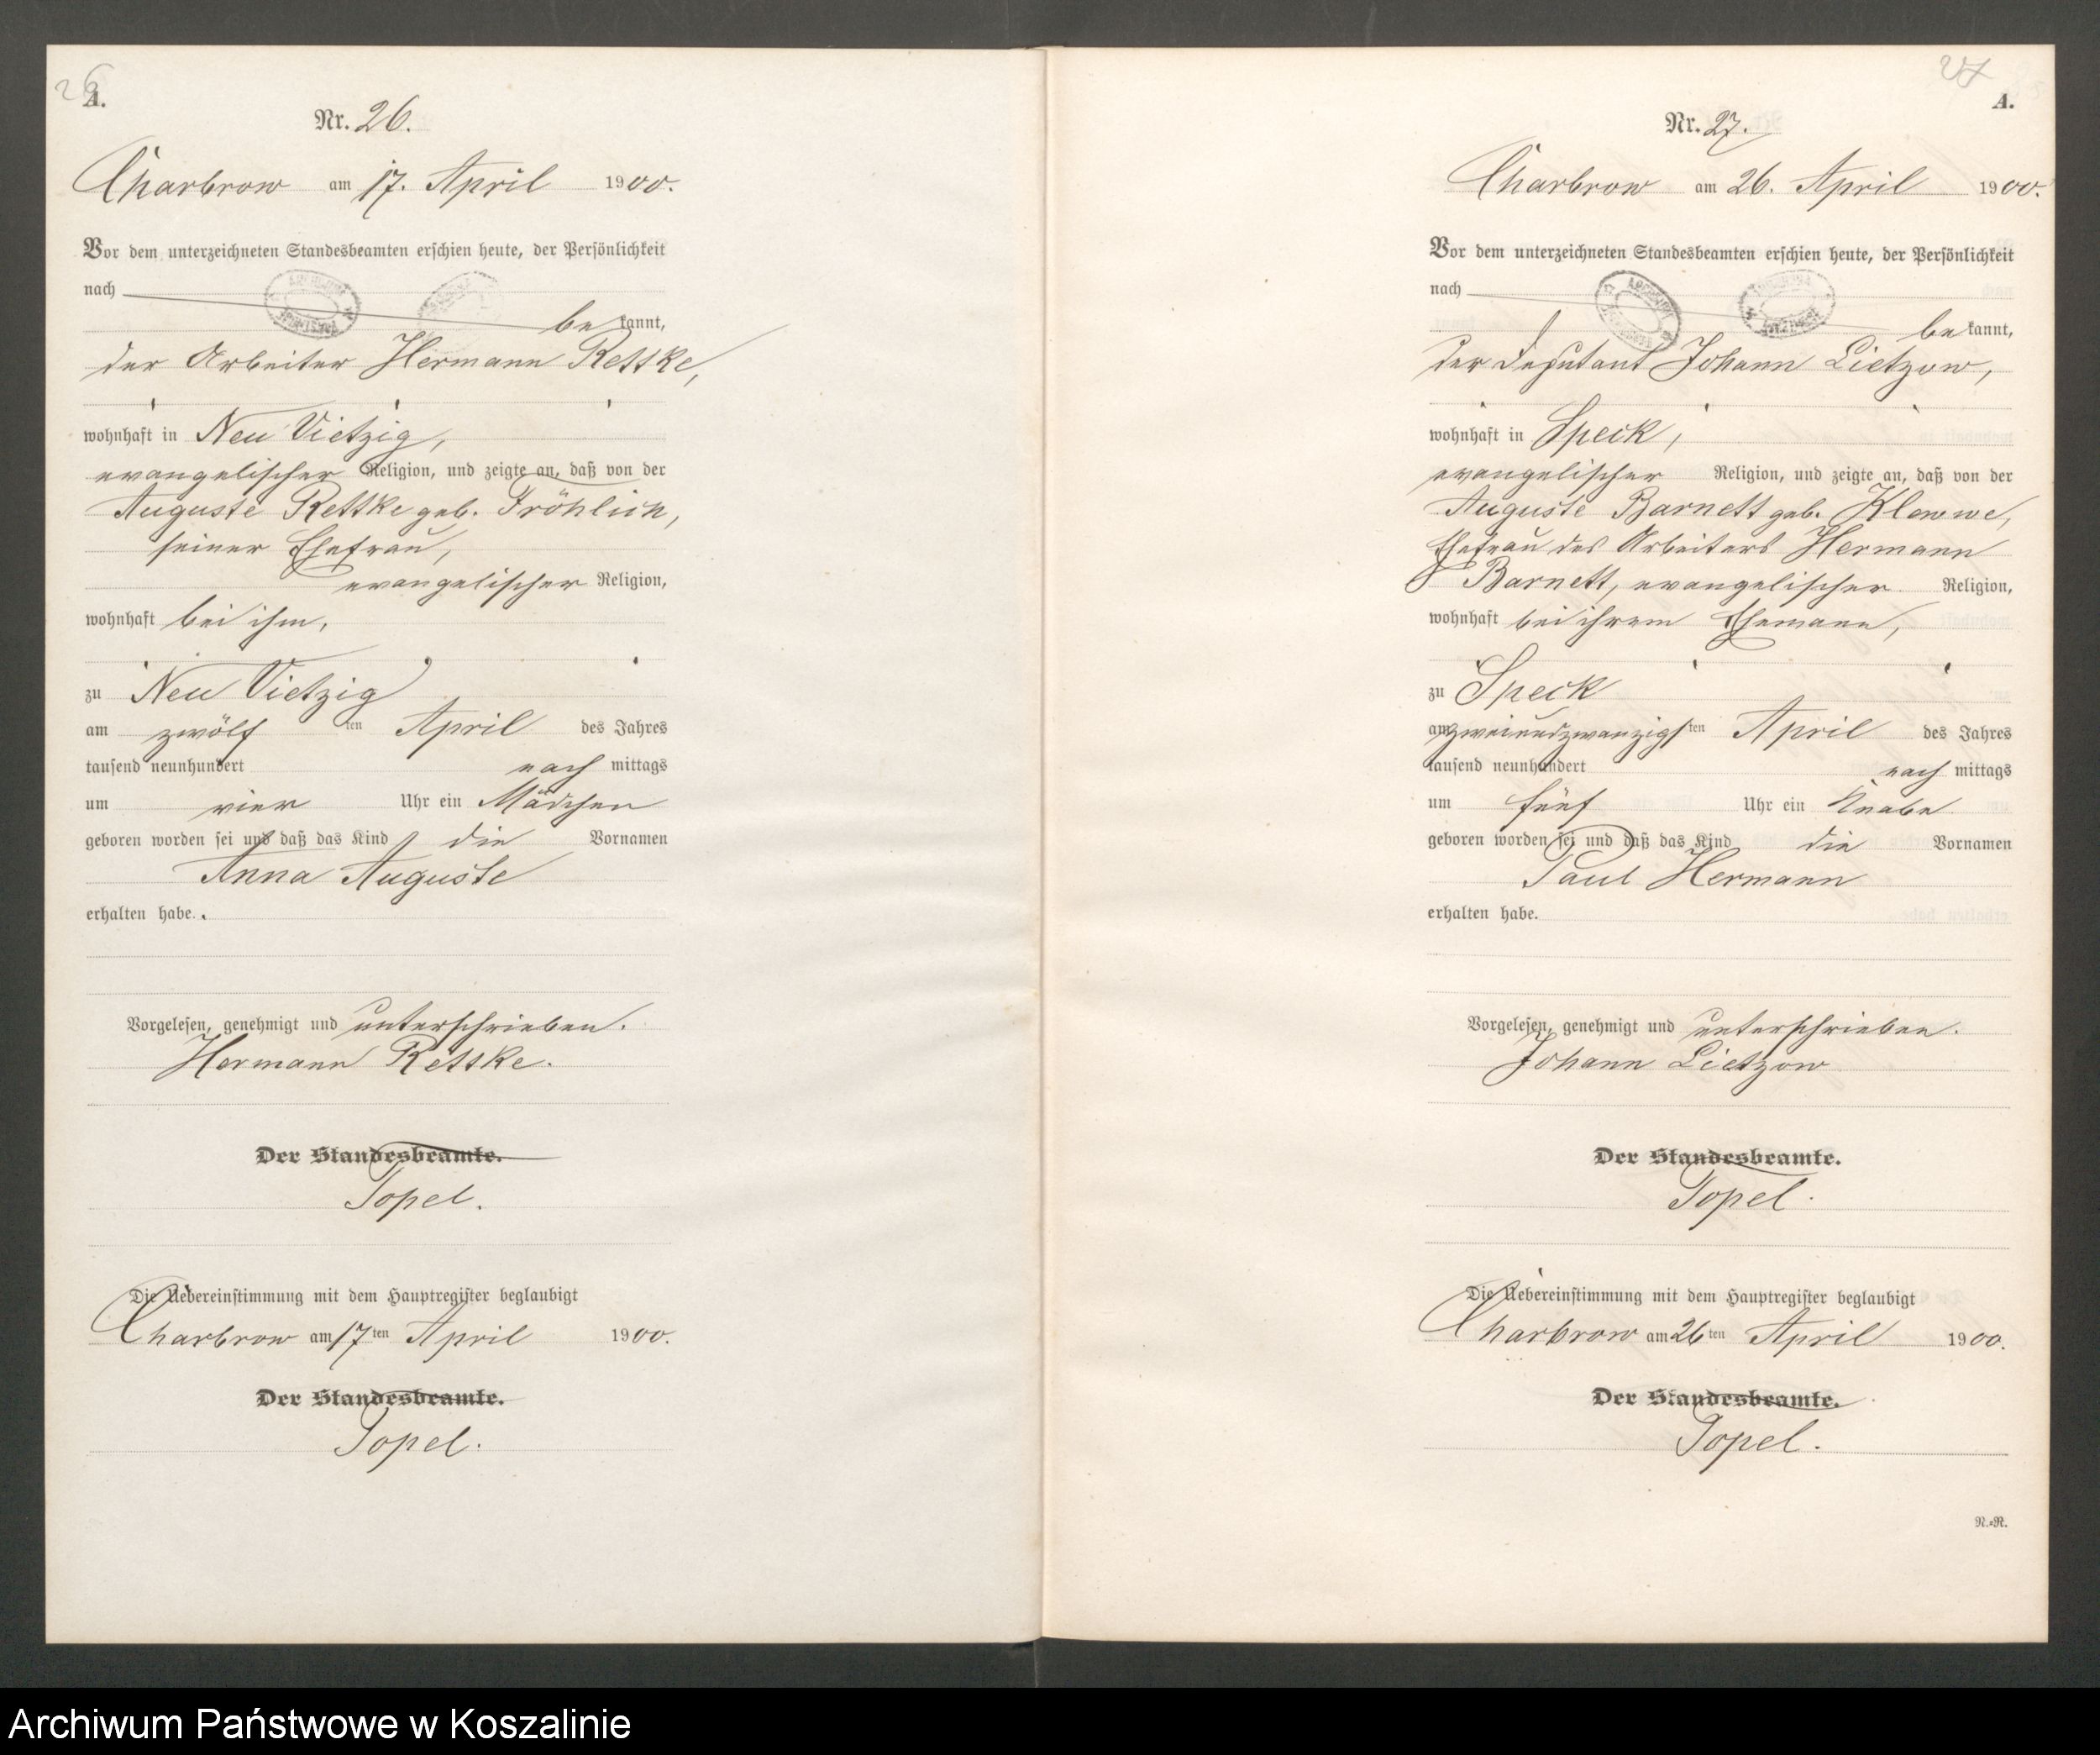 26
A.
Nr. 26.
Charbrow am 17. April 1900.
Vor dem unterzeichneten Standesbeamten erschien heute, der Persönlichkeit
nach
be kannt,
der Arbeiter Hermann Rettke,
wohnhaft in Neu Vietzig,
evangelischer Religion, und zeigte an, daß von der
Auguste Rettke geb. Fröhlich,
seiner Ehefrau,
evangelischer Religion,
wohnhaft bei ihm,
zu Neu Vietzig
am zwölf ten April des Jahres
tausend neunhundert nach mittags
um vier Uhr ein Mädchen
geboren worden sei und daß das Kind die Vornamen
Anna Auguste
erhalten habe.
Vorgelesen, genehmigt und unterschrieben.
Hermann Rettke.
Der Standesbeamte.
Topel.
Die Uebereinstimmung mit dem Hauptregister beglaubigt
Charbrow am 17ten April 1900.
Der Standesbeamte.
Topel.
27
A.
Nr. 27.
Charbrow am 26. April 1900.
Vor dem unterzeichneten Standesbeamten erschien heute, der Persönlichkeit
nach
be kannt,
der Deputant Johann Lietzow,
wohnhaft in Speck,
evangelischer Religion, und zeigte an, daß von der
Auguste Barnett geb. Klawwe,
Ehefrau des Arbeiters Hermann
Barnett, evangelischer Religion,
wohnhaft bei ihrem Ehemann,
zu Speck
am zweiundzwanzigsten April des Jahres
tausend neunhundert nach mittags
um fünf Uhr ein Knabe
geboren worden sei und daß das Kind die Vornamen
Paul Hermann
erhalten habe.
Vorgelesen, genehmigt und unterschrieben.
Johann Lietzow
Der Standesbeamte.
Topel.
Die Uebereinstimmung mit dem Hauptregister beglaubigt
Charbrow am 26ten April 1900.
Der Standesbeamte.
Topel.
N.=R.
Archiwum Państwowe w Koszalinie